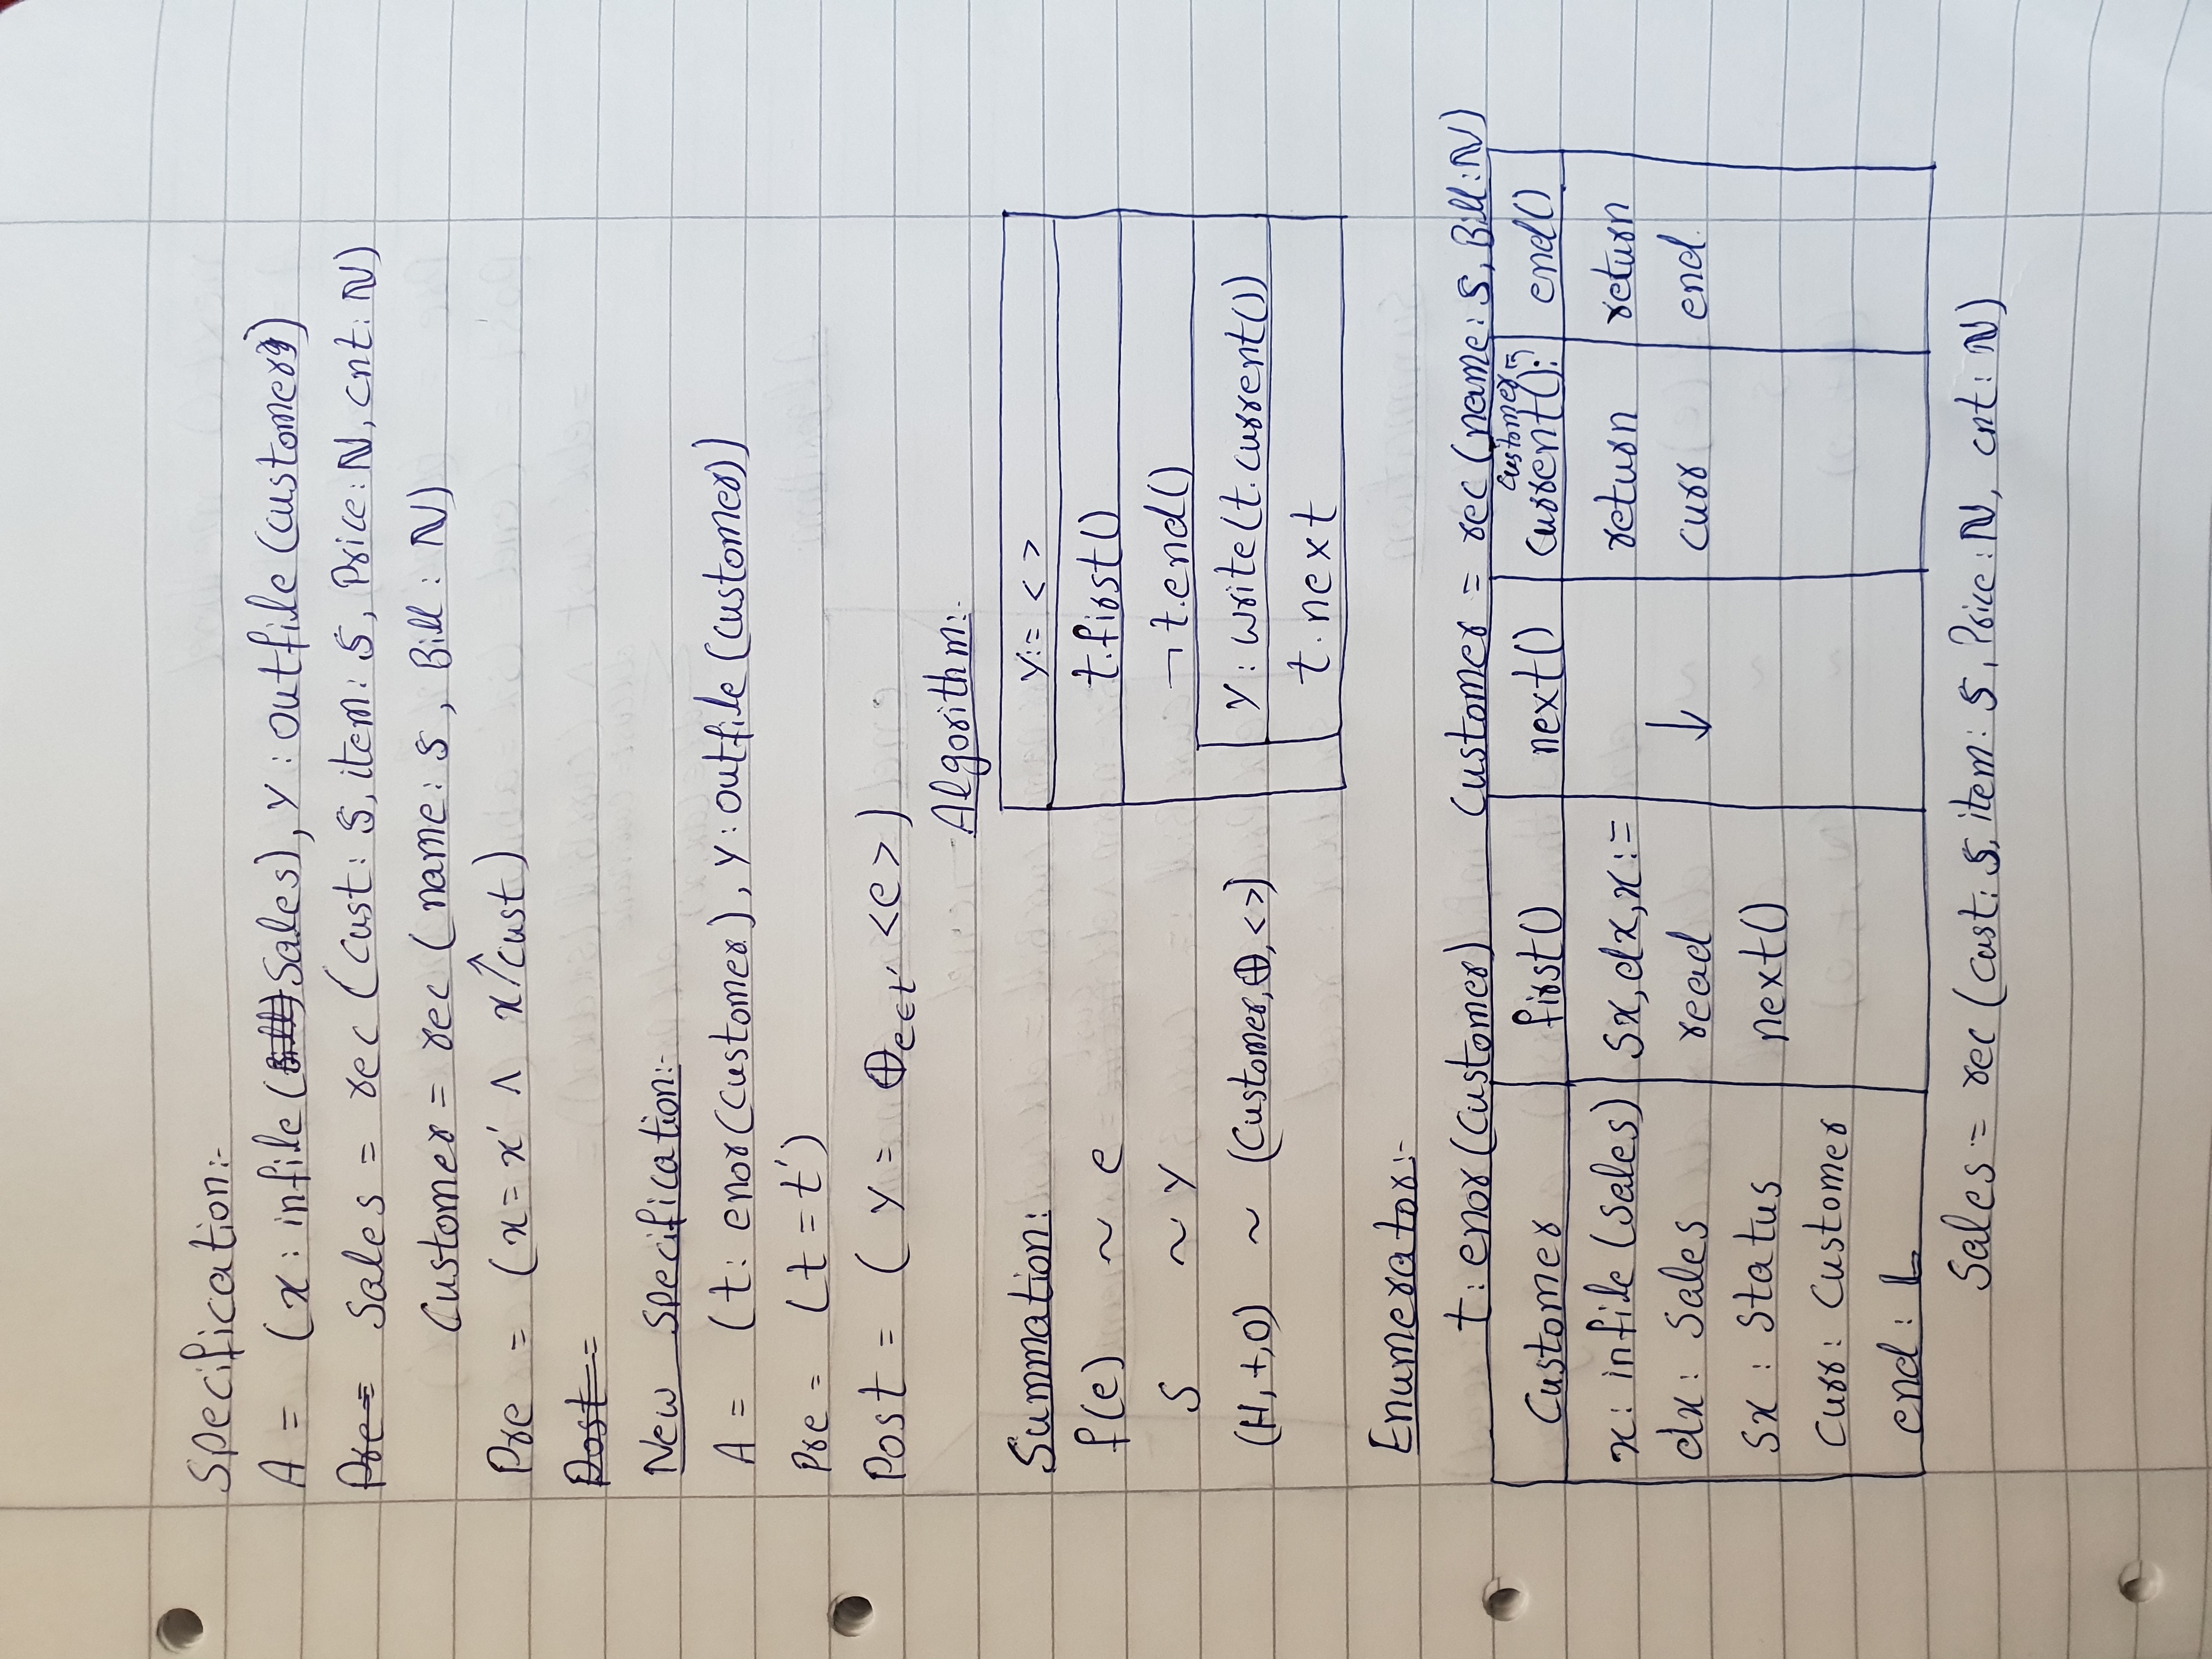 Specification:-
A = (x : infile (Sales), y : outfile (customer))
Sales = rec (cust: S, item: S, Price: ℕ, cnt: ℕ)
Customer = rec (name: S, Bill : ℕ)
Pre = (x = x' ∧ x↑cust)
Post =
New Specification:-
A = (t: enor(Customer), y: outfile (customer))
Pre = (t = t')
Post = ( y = ⊕e∈t' <e>)
Algorithm:-
Summation:
y:= < >
f(e) ~ e
t.first()
S ~ y
¬ t.end()
(H, +, 0) ~ (Customer, ⊕, <>)
y : write(t.current())
t.next
Enumerator:-
t: enor (Customer) Customer = rec (name: S, Bill: ℕ)
Customer first() next() current(): Customer end()
x: infile (Sales) Sx, dx, x := return return
dx: Sales read ↓ curr end.
Sx : Status next()
Curr: Customer
end : L
Sales = rec (cust: S, item: S, Price: ℕ, cnt: ℕ)